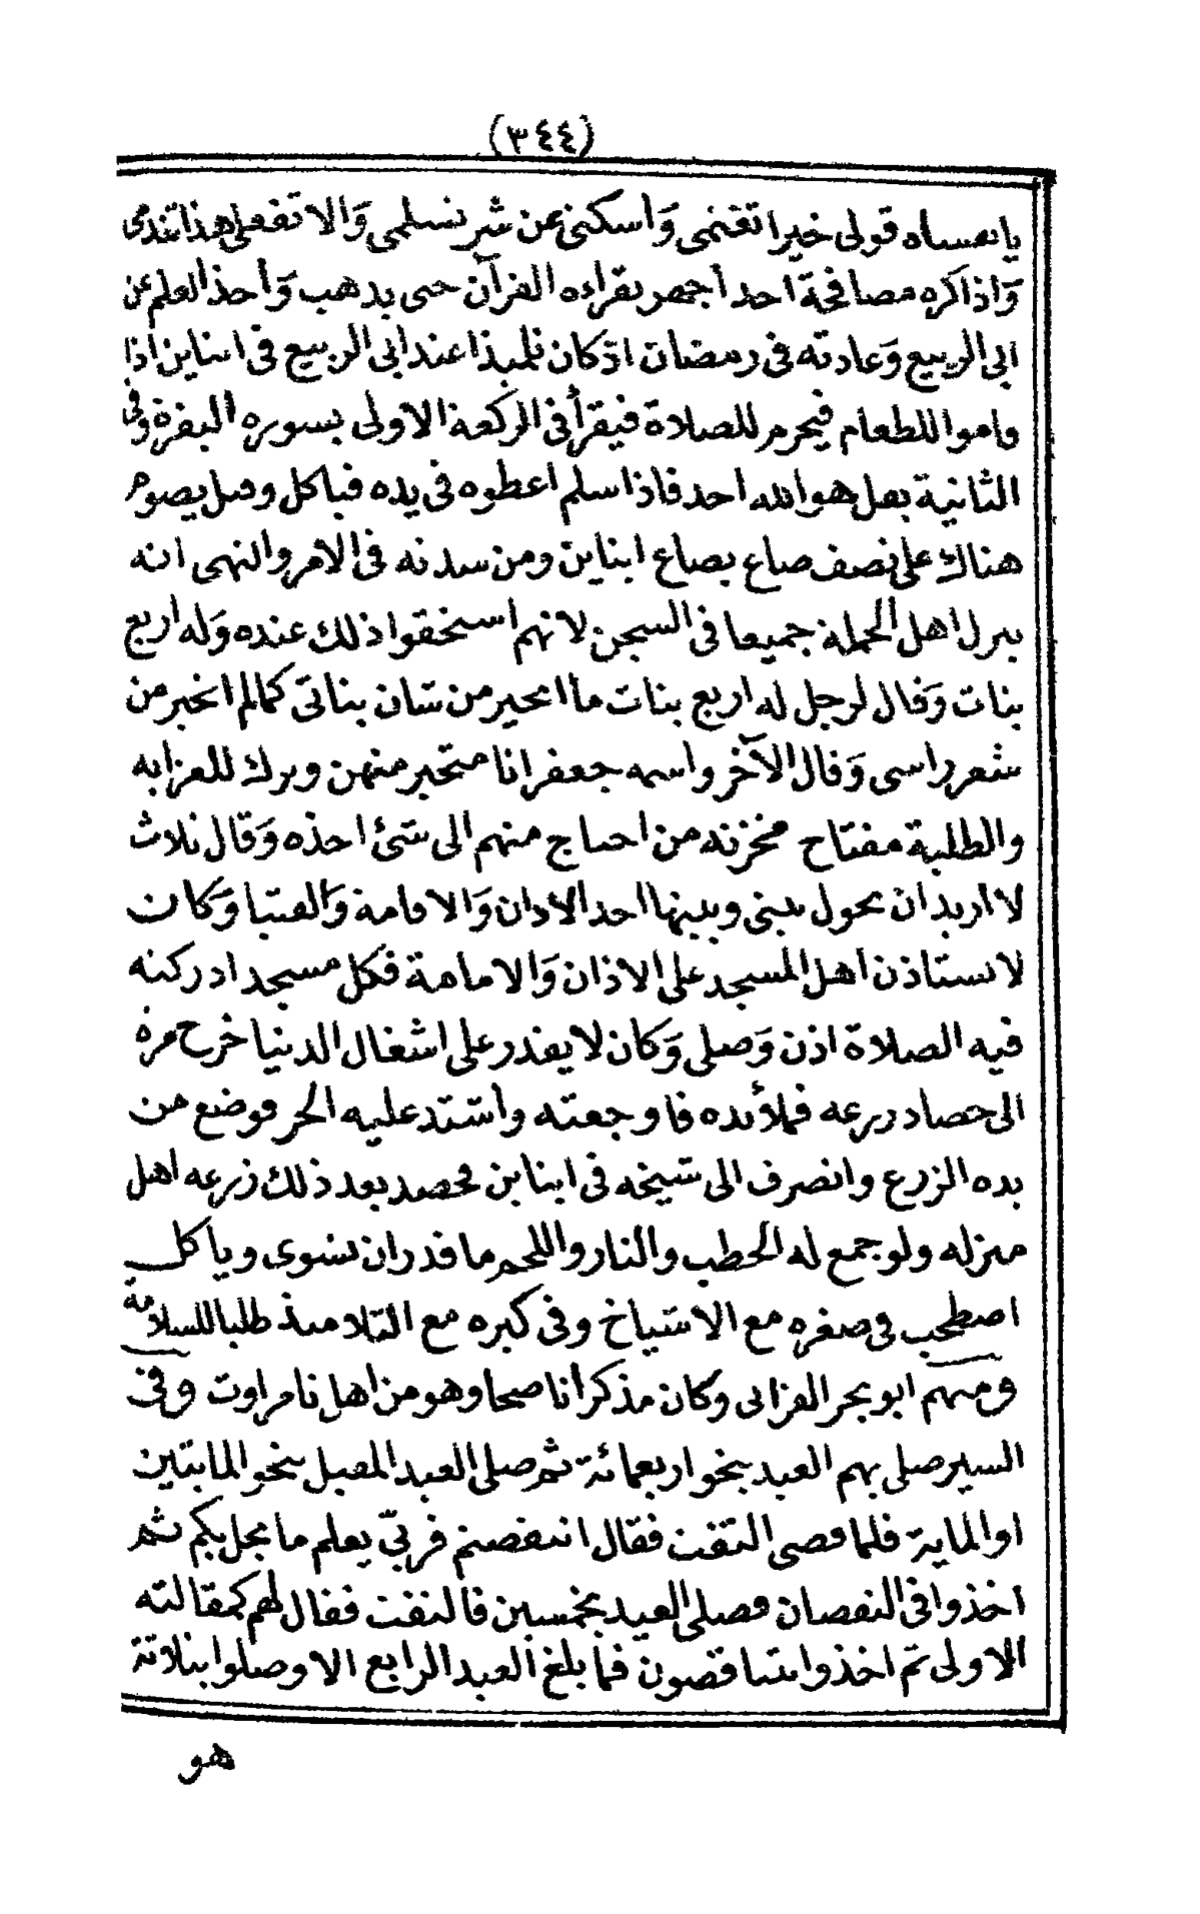 (٣٤٤)
يا نفساه قولى خيرا تغنمى وَاسكتى عن شر تسلمى وَالا تفعلى هذا تندمى
وَاذا كره مصافحة احد أجهر بقراءه القرآن حتى يذهب وَأخذ العلم عن
ابى الربيع وَعادته فى رمضان اذ كان تلميذا عند ابى الربيع فى ابناين اذا
قاموا للطعام فيحرم للصلاة فيقرأ فى الركعة الاولى بسوره البقرة وفى
الثانية بقل هو الله احد فاذا سلم اعطوه فى يده فياكل وقيل يصوم
هناك على نصف صاع بصاع ابناين ومن شدته فى الامر والنهى انه
ينزل اهل الحملة جميعا فى السجن لانهم استحقوا ذلك عنده وَله اربع
بنات وَقال لرجل له اربع بنات ما اتحير من شان بناتى كما لم اتحير من
شعر راسى وَقال الآخر واسمه جعفر انا متحير منهن وترك للعزابه
والطلبة مفتاح مخزنه من احتاج منهم الى شئ اخذه وَقال ثلاث
لا اريد ان يحول بينى وبينها احد الاذان وَالاقامة وَالفتيا وَكان
لا يستاذن اهل المسجد على الاذان وَالامامة فكل مسجد ادركته
فيه الصلاة اذن وَصلى وَكان لا يقدر على اشغال الدنيا خرج مرة
الى حصاد زرعه فملأ يده فاوجعته واشتد عليه الحر فوضع من
يده الزرع وانصرف الى شيخه فى ابناين فحصد بعد ذلك زرعه اهل
منزله ولو جمع له الحطب والنار واللحم ما قدر ان يشوى وياكل
اصطحب فى صغره مع الاشياخ وفى كبره مع التلاميذ طلبا للسلامة
ومنهم ابو بحر الفزانى وكان مذكرا ناصحا وهو من اهل تامراوت وفى
السير صلى بهم العيد بنحو اربعمائة ثم صلى العيد المقبل بنحو المايتين
او الماية فلما قضى التفت فقال انتقصتم فربى يعلم ما يحل بكم ثم
اخذوا فى النقصان فصلى العيد بخمسين فالتفت فقال لهم كمقالته
الاولى ثم اخذوا يتناقصون فما بلغ العيد الرابع الا وصلوا بثلاثة
هو